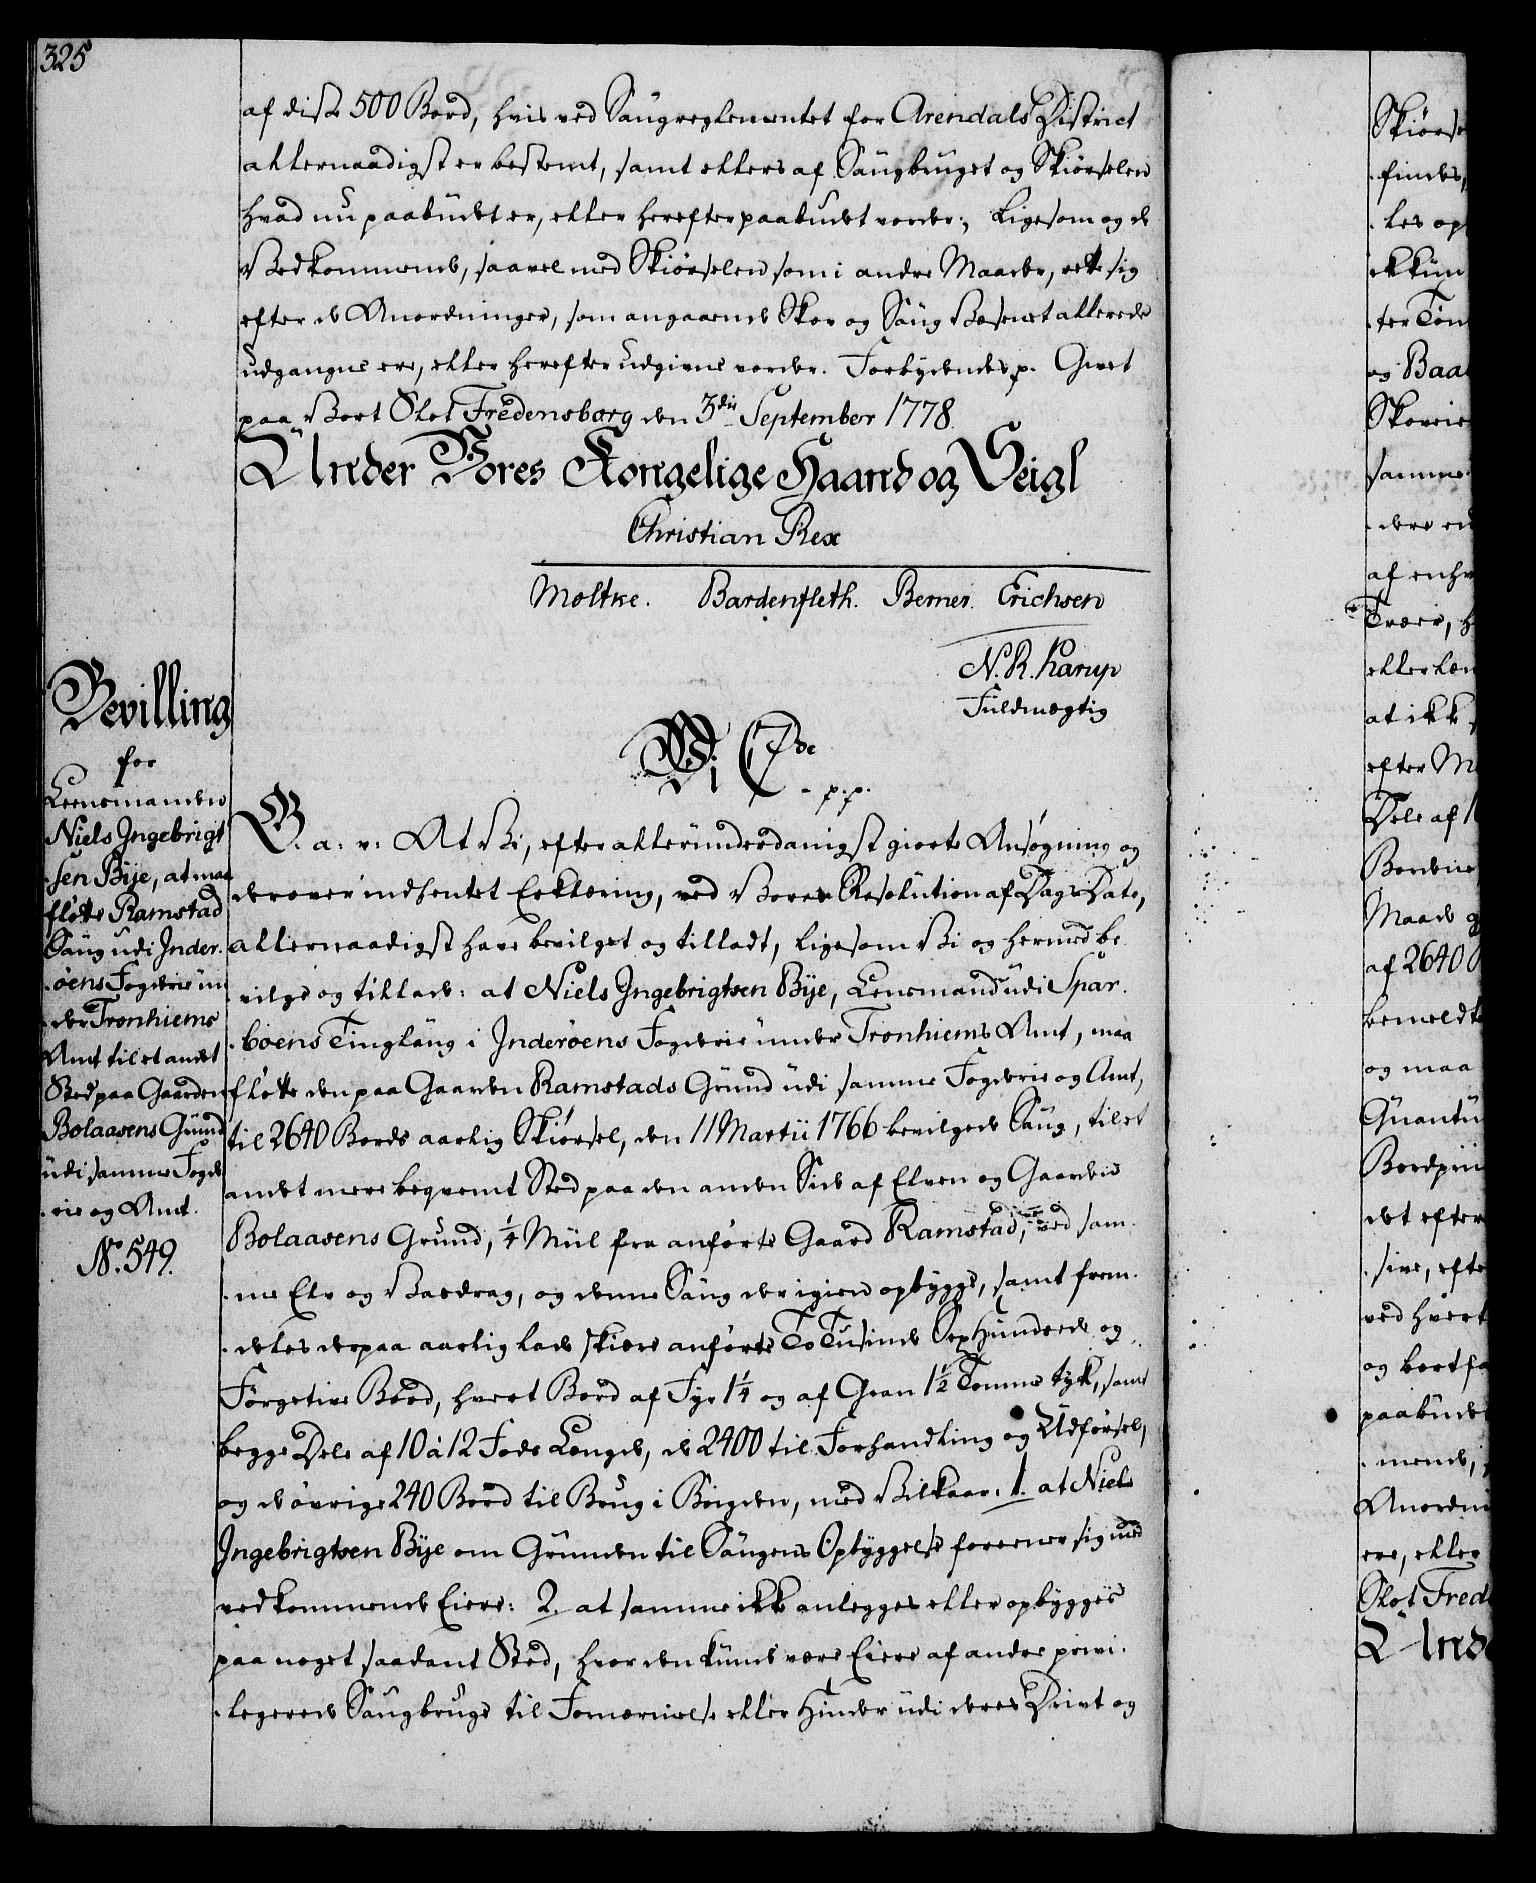 325
af disse 500 Bord, hvis ved Saugreglementet for Arendals District
allernaadigst er bestemt, samt ellers af Saugbruget og Skiørselen
hvad nu paabudet er, eller herefter paabudet vorder; Ligesom og de
Vedkommende, saavel med Skiørselen som i andre Maader, rette sig
efter de Anordninger, som angaaende Skov og Saug Væsenet allerede
udgangne ere, eller herefter udgivne vorder. Forbydendes p. Givet
paa Vort Slot Fredensborg den 3die September 1778.
Under Vores Kongelige Haand og Seigl
Christian Rex
Moltke. Bardenfleth. Berner. Erichsen
N. R. Karup
Fuldmægtig
Bevilling
for
Leensmanden
Niels Ingebrigt
sen Bije, at maa
flötte Ramstad
Saug udi Inder
öens Fogderie un
der Tronhiems
Amt til et andet
Sted paa Gaarden
Bolaasens Grund
udi samme Fogde
rie og Amt.
No. 549.
Vi C 7de
p. p.
G. a. v: At Vi, efter allerunderdanigst giorte Ansøgning og
derover indhentet Erklæring, ved Vores Resolution af Dags Dato,
allernaadigst have bevilget og tilladt, ligesom Vi og hermed be
vilge og tillade: at Niels Ingebrigtsen Bije, Lensmand udi Spar
boens Tinglaug i Inderöens Fogderie under Tronhiems Amt, maa
flötte den paa Gaarden Ramstads Grund udi samme Fogderie og Amt,
til 2640 Bords aarlig Skiørsel, den 11 Martii 1766 bevilgede Saug, til et
andet mere beqvemt Sted paa den anden Side af Elven og Gaarden
Bolaasens Grund, 1/4 Miil fra anförte Gaard Ramstad, ved sam
me Elv og Vasdrag, og denne Saug der igien opbygge, samt frem
deles derpaa aarlig lade skiære anförte To Tusinde Sex Hundrede og
Förgetive Bord, hvert Bord af Fyr 1 1/4 og af Gran 1 1/2 Tomme tyk, samt
begge Dele af 10 à 12 Fods Længde, de 2400 til Forhandling og Udförsel,
og de övrige 240 Bord til Brug i Böigden, med Vilkaar: 1. at Niels
Ingebrigtsen Bije om Grunden til Saugens Opbyggelse foreener sig med
vedkommende Eiere: 2. at samme ikke anlegges eller opbygges
paa noget saadant Sted, hvor den kunde være Eiere af andre privi
legerede Saugbrugs til Fornærmelse eller Hinder udi deres Drivt og
Skiørse
findes,
les op
ter Tom
og Baa
Skoveie
samme
af enhv
Træer, h
eller læn
at ikke
efter M
Dele af 1
Bordene
Maade
af 2640
bemeldte
og maa
Quantu
det efter
sive, efte
ved hvert
og bortfø
paabudet
mende,
Anordni
ere, eller
Slot Frede
Unde